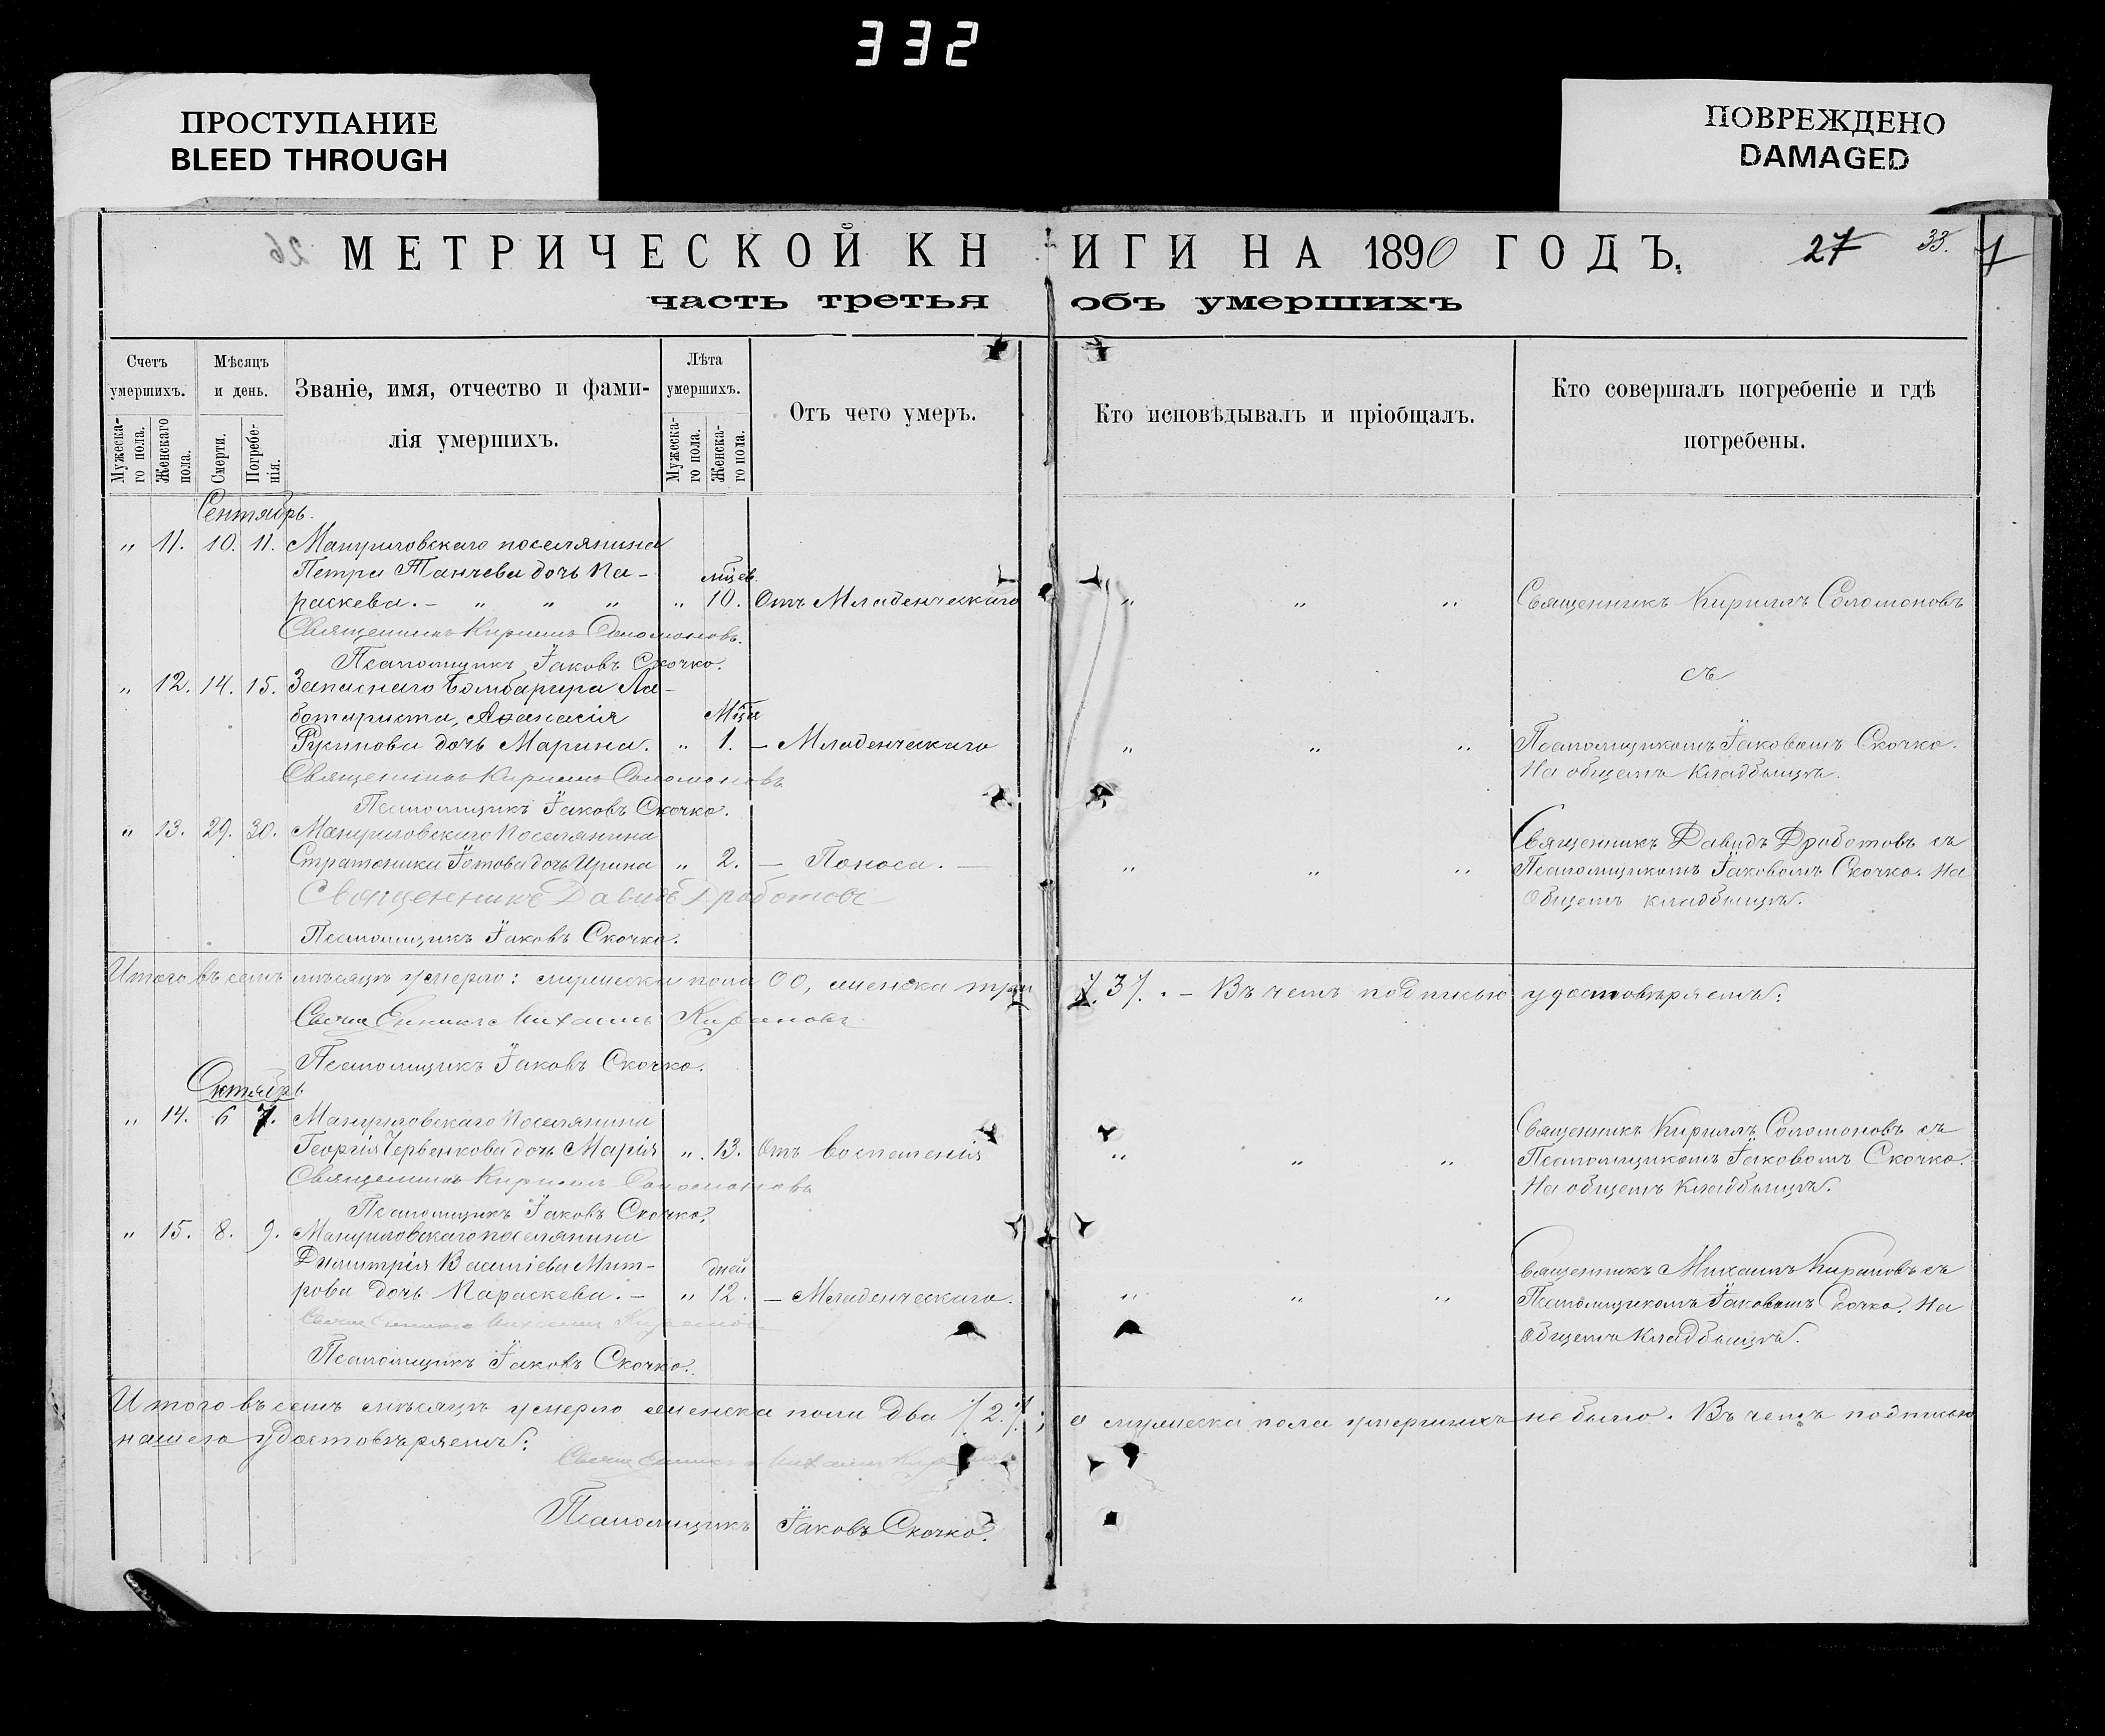 332
ПРОСТУПАНИЕ
BLEED THROUGH
ПОВРЕЖДЕНО
DAMAGED
26 МЕТРИЧЕСКОЙ КНИГИ НА 1890 ГОДЪ. 27 33. 1
часть третья объ умершихъ
Счетъ умершихъ.
Мужескаго пола.
Женскаго пола.
Мѣсяцъ и день.
Смерти.
Погребенія.
Званіе, имя, отчество и фамилія умершихъ.
Лѣта умершихъ.
Мужескаго пола.
Женскаго пола.
Отъ чего умеръ.
Кто исповѣдывалъ и пріобщалъ.
Кто совершалъ погребеніе и гдѣ погребены.
Сентябрь.
„ 11. 10. 11. Мануиловскаго поселянина
Петра Танчева дочь Па-
мцев.
раскева. — „ „ „ „ 10. Отъ Младенческаго „ „ „ Священникъ Кириллъ Соломоновъ
Священникъ Кириллъ Соломоновъ.
Псаломщикъ Їаковъ Скочко.
съ
„ 12. 14. 15. Запаснаго Бомбардира Ла-
ботариста, Аѳанасія Мца
Русинова дочь Марина. „ 1. — Младенческаго „ „ „ Псаломщикомъ Їаковомъ Скочко.
На общемъ кладбищѣ.
Священникъ Кириллъ Соломоновъ
Псаломщикъ Їаковъ Скочко.
„ 13. 29. 30. Мануиловскаго Поселянина
Священникъ Давидъ Дроботовъ съ
Стратоника Їотова дочь Ирина „ 2. — Поноса. — „ „ „ Псаломщикомъ Їаковомъ Скочко. На
Общемъ кладбищѣ.
Священникъ Давидъ Дроботовъ
Псаломщикъ Їаковъ Скочко.
Итого въ семъ мѣсяцѣ умерло: мужеска пола 00, женска три /.3/. — Въ чемъ подписью удостовѣряемъ:
Священникъ Михаилъ Кирановъ
Псаломщикъ Їаковъ Скочко.
Октябрь
„ 14. 6 7. Мануиловскаго Поселянина
Священникъ Кириллъ Соломоновъ съ
Георгія Червенкова дочь Марія „ 13. Отъ воспаленія „ „ „ Псаломщикомъ Їаковомъ Скочко.
На общемъ Кладбищѣ.
Священникъ Кириллъ Соломоновъ
Псаломщикъ Їаковъ Скочко.
„ 15. 8. 9. Мануиловскаго поселянина
Димитрія Василіева Мит- дней
Священникъ Михаилъ Кирановъ съ
рова дочь Параскева. — „ 12. — Младенческаго. „ „ „ Псаломщикомъ Їаковомъ Скочко. На
Общемъ Кладбищѣ.
Священникъ Михаилъ Кирановъ
Псаломщикъ Їаковъ Скочко.
Итого въ семъ мѣсяцѣ умерло женска пола два /.2./; а мужеска пола умершихъ не было. Въ чемъ подписью
нашею удостовѣряемъ:
Священникъ Михаилъ Кирановъ
Псаломщикъ Їаковъ Скочко.